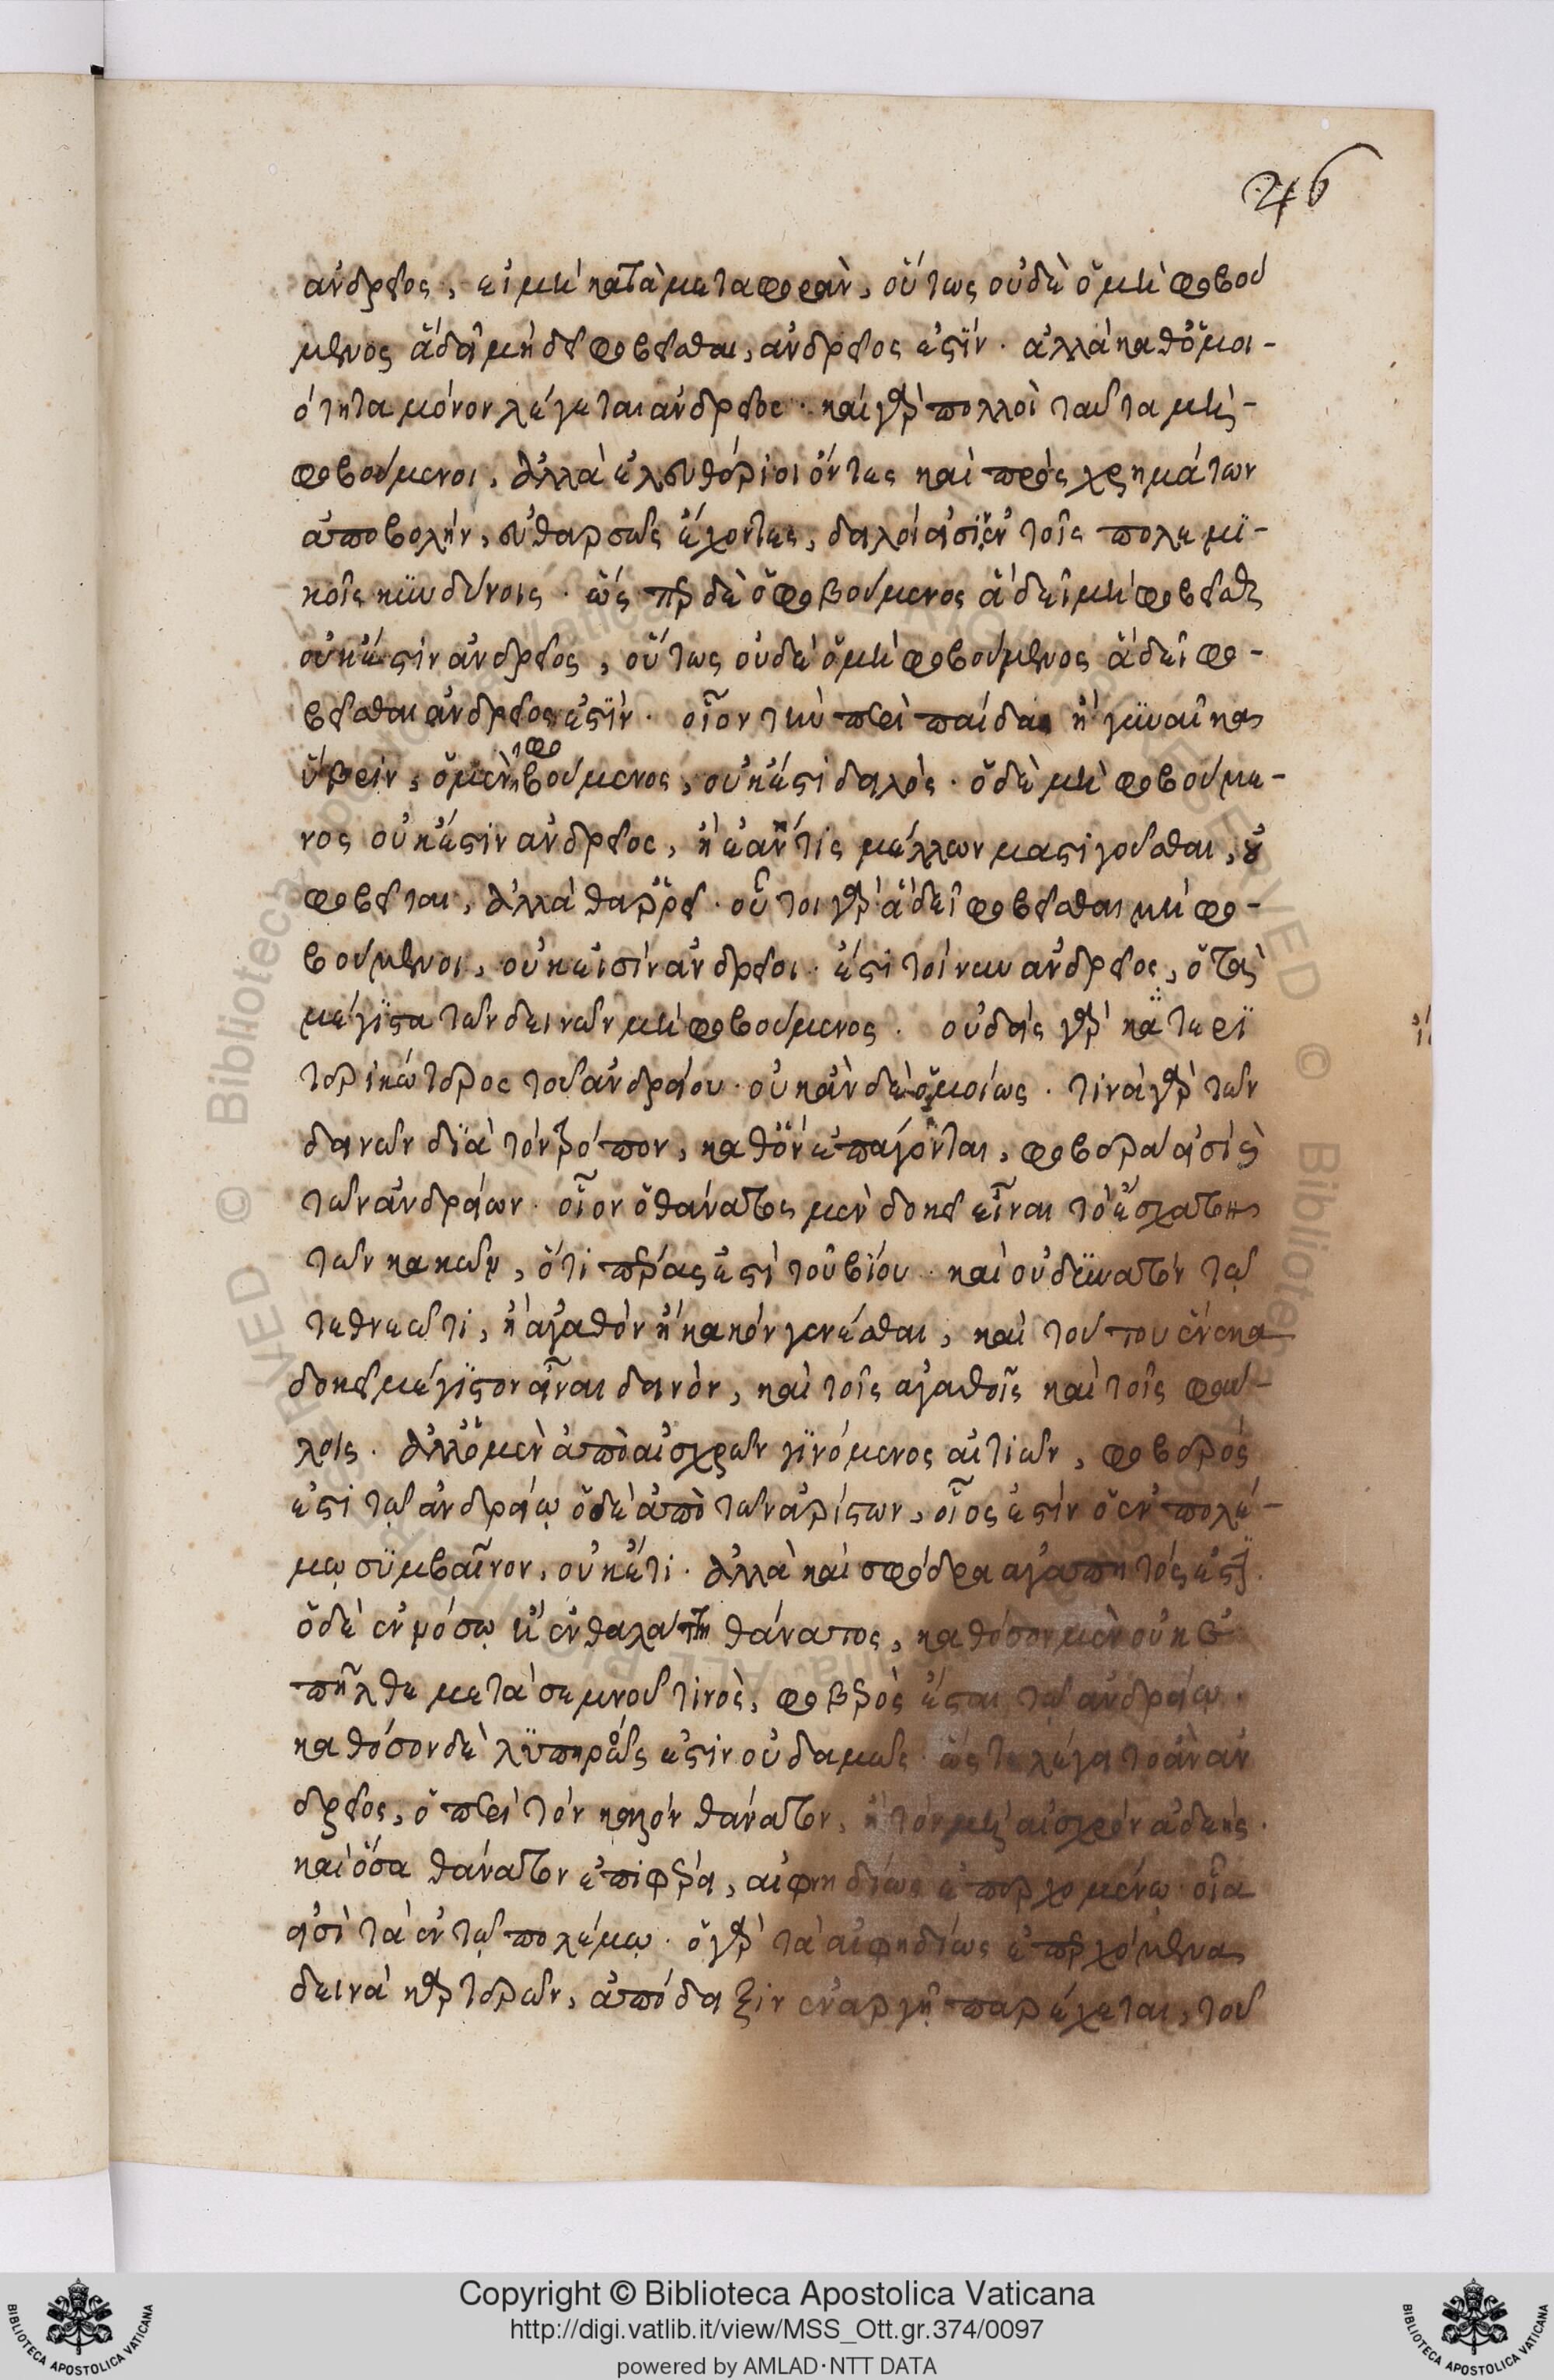 246
ἀνδρεῖος, εἰ μὴ κατὰ μεταφορὰν, οὕτως οὐδὲ ὁ μὴ φοβού
μενος ἃ δεῖ μὴ δεῖ φοβεῖσθαι, ἀνδρεῖος ἐστὶν. ἀλλὰ καθ' ὁμοι-
ότητα μόνον λέγεται ἀνδρεῖος. καὶ γὰρ πολλοὶ ταῦτα μὴ-
φοβούμενοι, ἀλλὰ ἐλευθέριοι ὄντες καὶ πρὸς χρημάτων
ἀποβολὴν, εὐθαρσῶς ἔχοντες, δειλοί εἰσιν ἐν τοῖς πολεμι-
κοῖς κινδύνοις. ὥσπερ δὲ ὁ φοβούμενος ἃ δεῖ μὴ φοβεῖσθαι
οὐκ ἔστιν ἀνδρεῖος, οὕτως οὐδὲ ὁ μὴ φοβούμενος ἃ δεῖ φο-
βεῖσθαι ἀνδρεῖος ἐστὶν. οἷον τὴν περὶ παῖδας ἢ γυναῖκας
ὕβριν, ὁ μὲν φοβούμενος, οὐκ ἔστι δειλὸς. ὁ δὲ μὴ φοβούμε-
νος οὐκ ἔστιν ἀνδρεῖος, ἢ ἐὰν τίς μέλλων μαστιγοῦσθαι, οὐ
φοβεῖται, ἀλλὰ θαῤῥεῖ. οὗτοι γὰρ ἃ δεῖ φοβεῖσθαι μὴ φο-
βούμενοι, οὐκ εἰσὶν ἀνδρεῖοι. ἔστι τοίνυν ἀνδρεῖος, ὁ τὰ
μέγιστα τῶν δεινῶν μὴ φοβούμενος. οὐδεὶς γὰρ
τοῦ ἀνδρείου. οὐ πᾶν δὲ ὁμοίως. τινὰ γὰρ τῶν
δεινῶν διὰ τὸν τρόπον, καθ' ὃν ἐπάγονται, φοβερά εἰσι
τῶν ἀνδρείων. οἷον ὁ θάνατος μὲν δοκεῖ εἶναι τὸ ἔσχατον
τῶν κακῶν, ὅτι πέρας ἐστὶ τοῦ βίου. καὶ οὐ δυνατὸν τῷ
τεθνεῶτι, ἢ ἀγαθὸν ἢ κακὸν γενέσθαι, καὶ τούτου ἕνεκα
δοκεῖ μέγιστον εἶναι δεινὸν, καὶ τοῖς ἀγαθοῖς καὶ τοῖς φαύ-
λοις. ἀλλ' ὁ μὲν ἀπὸ αἰσχρῶν γινόμενος αἰτιῶν, φοβερός
ἐστι τῷ ἀνδρείῳ ὁ δὲ ἀπὸ τῶν ἀρίστων, οἷος ἐστὶν ὁ ἐν πολέ-
μῳ συμβαῖνον, οὐκέτι. ἀλλὰ καὶ σφόδρα ἀγαπητός ἐστι.
ὁ δὲ ἐν νόσῳ ἢ ἐν θαλάττῃ θάνατος, καθόσον μὲν οὐκ
ἐπῆλθε μετὰ σεμνοῦ τινὸς, φοβερὸς ἔσται τῷ ἀνδρείῳ.
καθόσον δὲ λυπηρῶς ἐστιν οὐδαμῶς. ὥστε λέγοιτο ἂν ἀν
δρεῖος, ὁ περὶ τὸν καλὸν θάνατον, ἢ τὸν μὴ αἰσχρὸν ἀδεής.
καὶ ὅσα θάνατον ἐπιφέρει, αἰφνηδίως ἐπερχομένῳ οἷα
εἰσὶ τὰ ἐν τῷ πολέμῳ. ὁ γὰρ τὰ αἰφνηδίως ἐπερχόμενα
δεινὰ καρτερῶν, ἀπόδειξιν ἐναργῆ παρέχεται, τοῦ
Copyright © Biblioteca Apostolica Vaticana
http://digi.vatlib.it/view/MSS_Ott.gr.374/0097
powered by AMLAD·NTT DATA